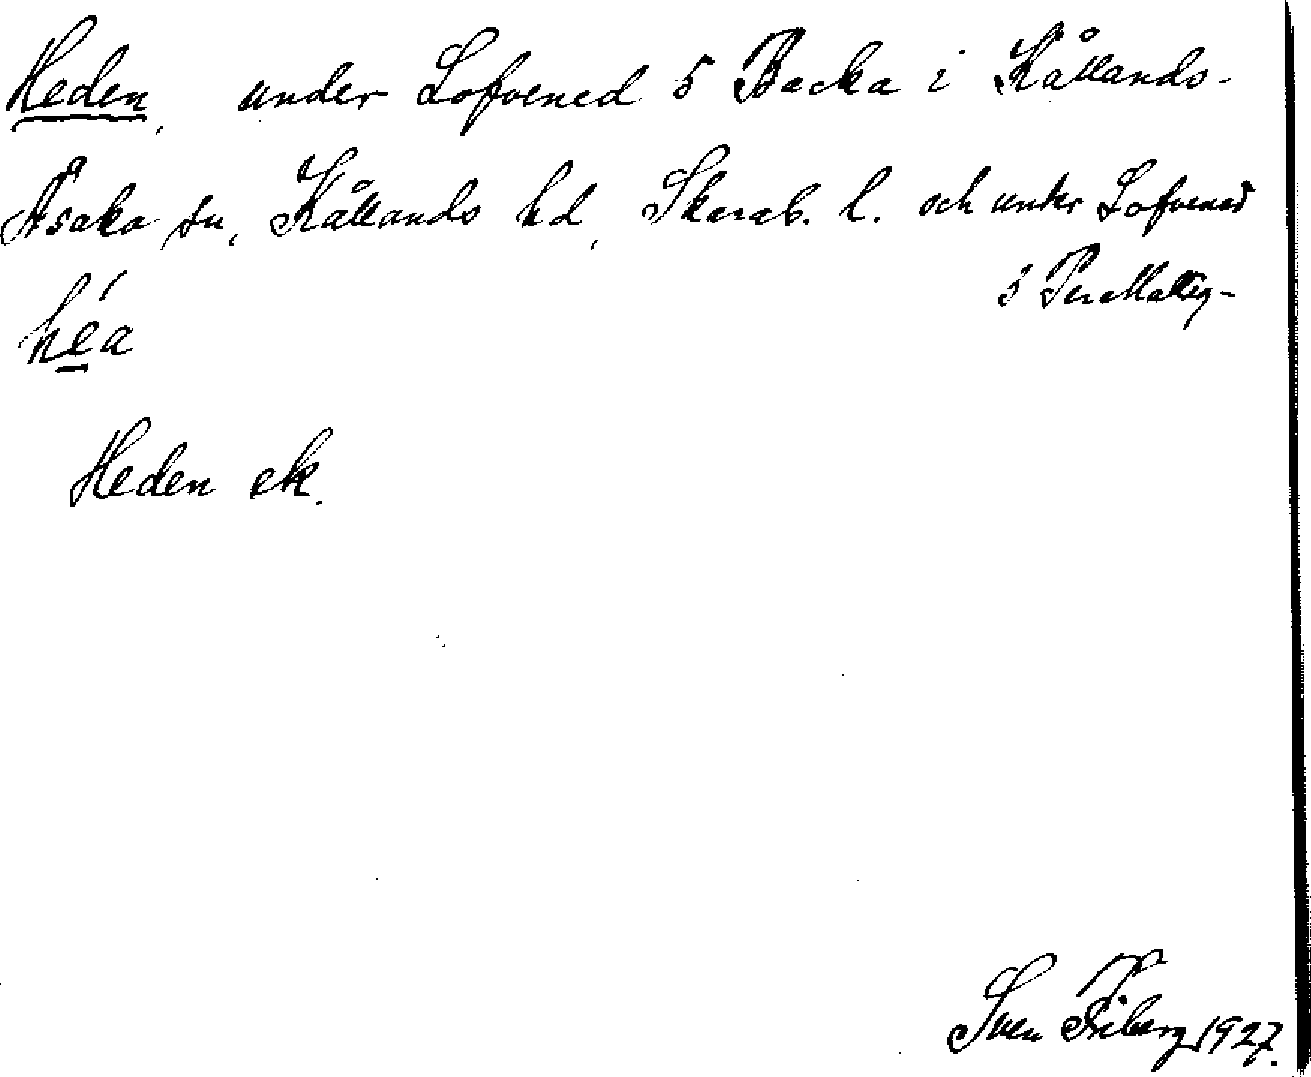 Heden, under Lofvened 5 Backa i Kållands-
Åsaka sn, Kållands hd, Skarab. l. och under Lofvened
5 Per
hé̱a
Heden ek.
Sven Friberg 1927.